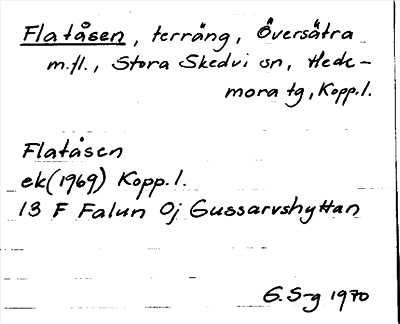 Flatåsen, terräng, Översätra
m.fl., Stora Skedvi sn, Hede-
mora tg, Kopp.l.
Flatåsen
ek(1969) Kopp.l.
13 F Falun 0j Gussarvshyttan
G.S-g 1970